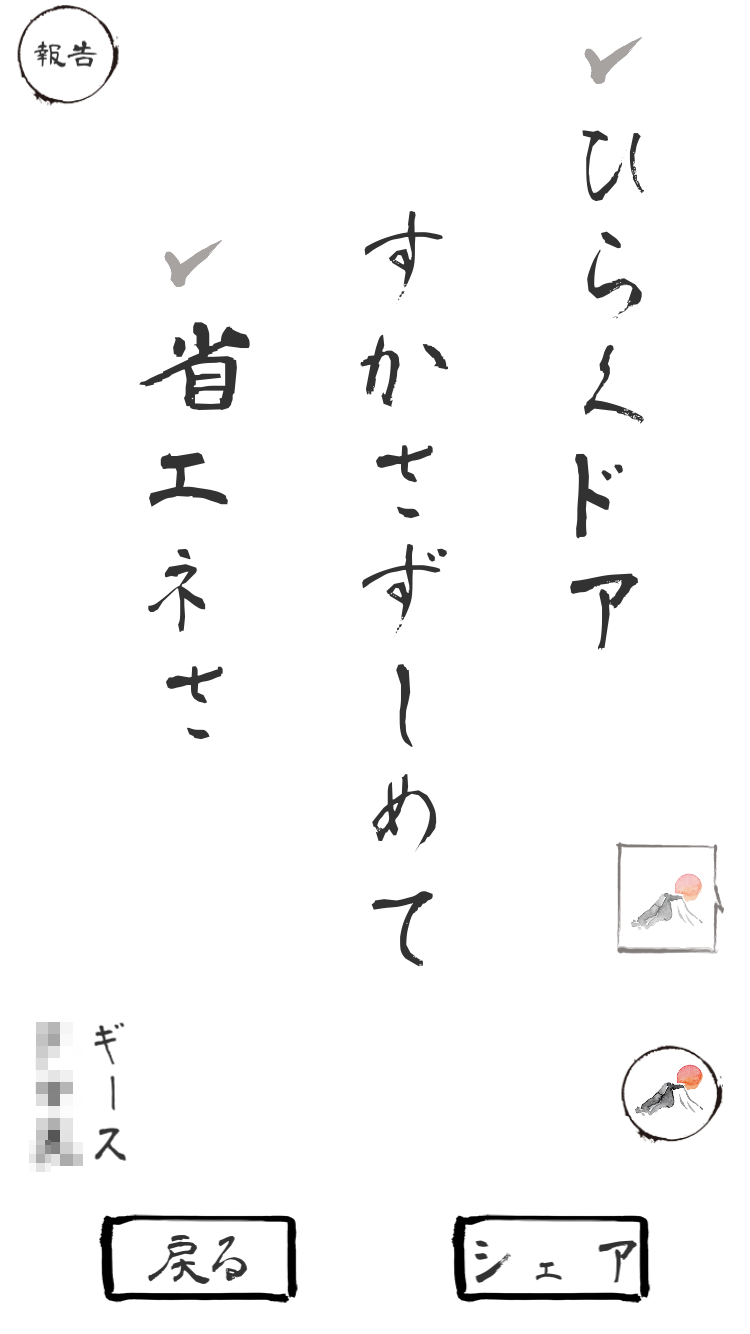 報告
ひらくドア
すかさずしめて
省エネさ
ギース
戻る
シェア